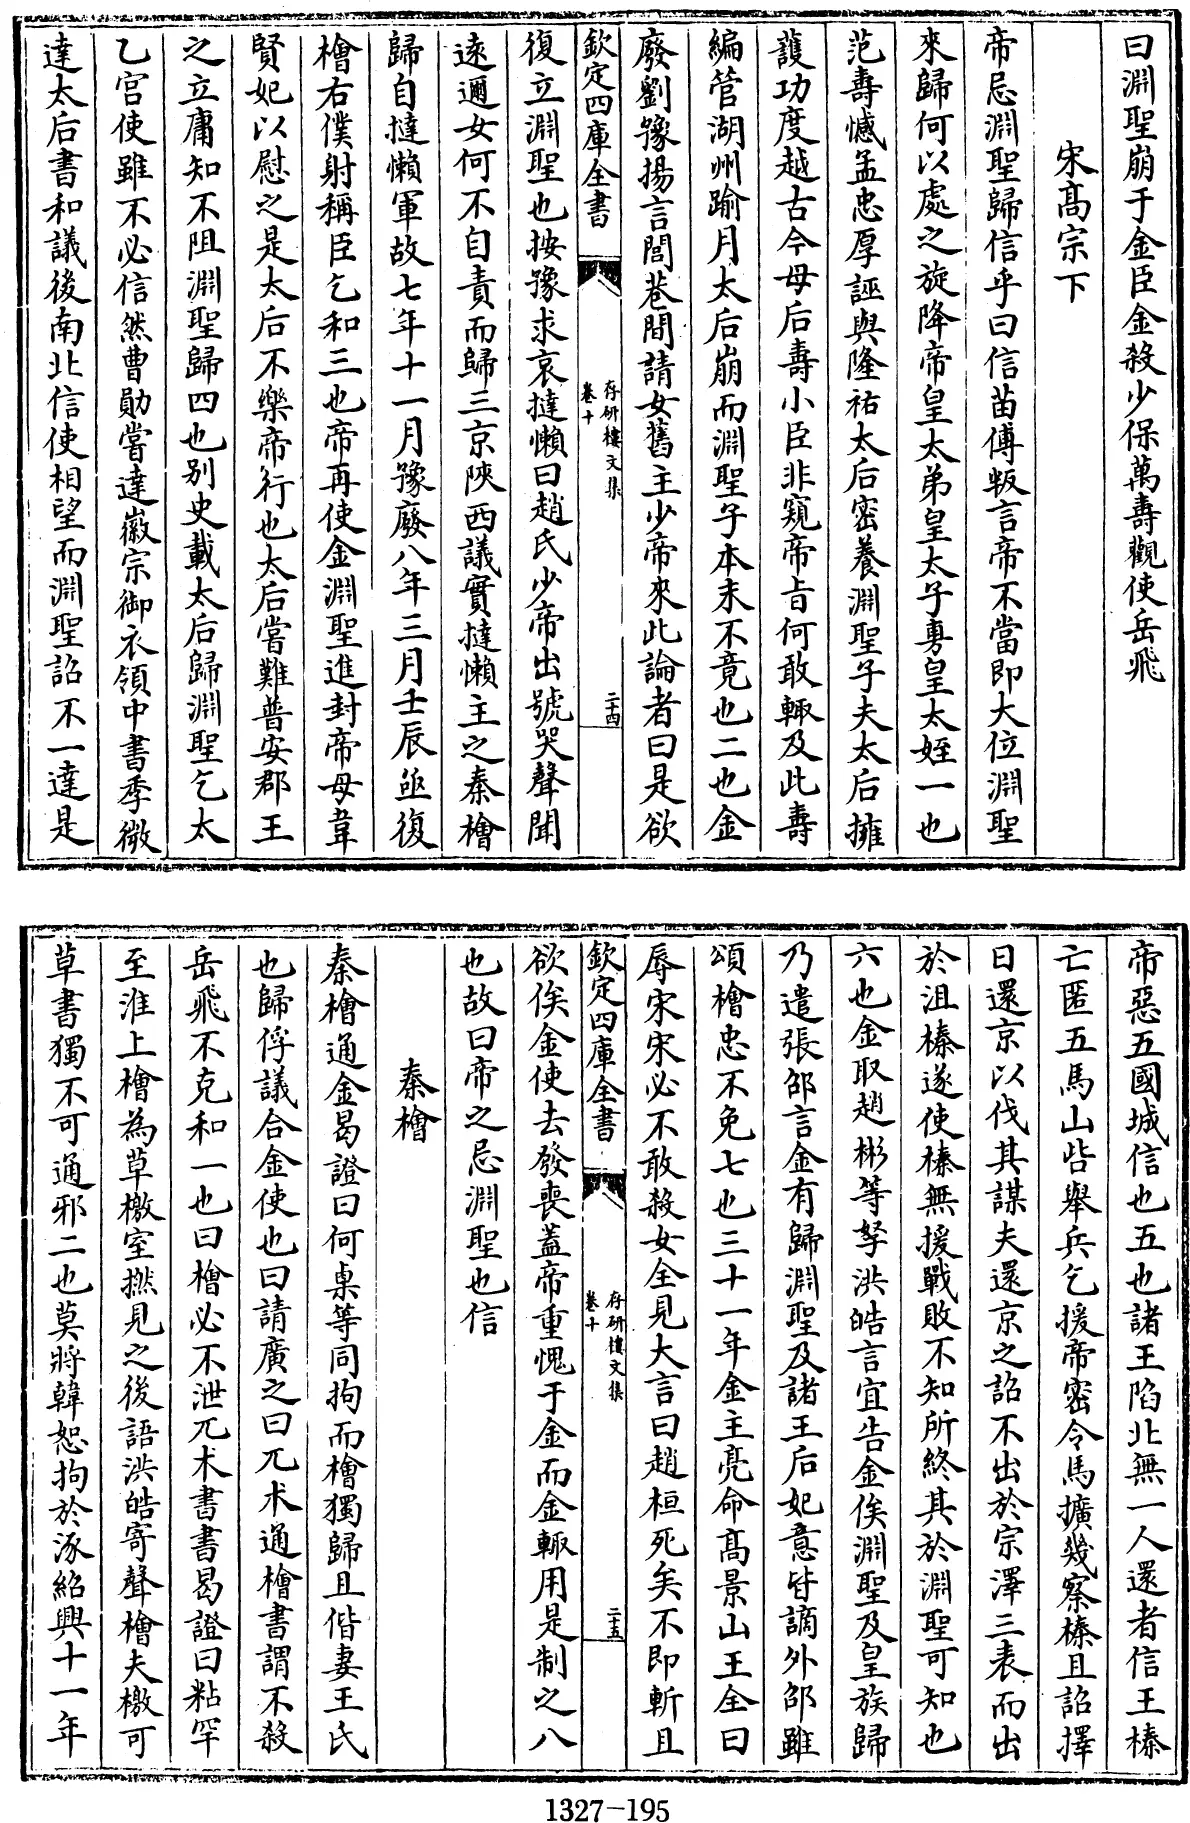 曰淵聖崩于金臣金殺少保萬壽觀使岳飛
宋高宗下
帝忌淵聖歸信乎曰信苗傅叛言帝不當即大位淵聖
來歸何以處之旋降帝皇太弟皇太子旉皇太姪一也
范壽憾孟忠厚誣與隆祐太后密養淵聖子夫太后擁
護功度越古今母后壽小臣非窺帝㫖何敢輒及此壽
編管湖州踰月太后崩而淵聖子本末不竟也二也金
廢劉豫揚言閭巷間請女舊主少帝來此論者曰是欲
欽定四庫全書
存研樓文集
卷十
二十四
復立淵聖也按豫求哀撻懶曰趙氏少帝出號哭聲聞
遠邇女何不自責而歸三京陝西議實撻懶主之秦檜
歸自撻懶軍故七年十一月豫廢八年三月壬辰亟復
檜右僕射稱臣乞和三也帝再使金淵聖進封帝母韋
賢妃以慰之是太后不樂帝行也太后嘗難普安郡王
之立庸知不阻淵聖歸四也别史載太后歸淵聖乞太
乙宮使雖不必信然曹勛嘗達徽宗御衣領中書季微
達太后書和議後南北信使相望而淵聖詔不一達是
帝惡五國城信也五也諸王陷北無一人還者信王榛
亡匿五馬山砦舉兵乞援帝密令馬擴幾察榛且詔擇
日還京以伐其謀夫還京之詔不出於宗澤三表而出
於沮榛遂使榛無援戰敗不知所終其於淵聖可知也
六也金取趙彬等孥洪皓言宜告金俟淵聖及皇族歸
乃遣張邵言金有歸淵聖及諸王后妃意皆謫外邵雖
頌檜忠不免七也三十一年金主亮命高景山王全曰
辱宋宋必不敢殺女全見大言曰趙桓死矣不即斬且
欽定四庫全書
存研樓文集
卷十
二十五
欲俟金使去發喪蓋帝重愧于金而金輒用是制之八
也故曰帝之忌淵聖也信
秦檜
秦檜通金曷證曰何㮚等同拘而檜獨歸且偕妻王氏
也歸俘議合金使也曰請廣之曰兀术通檜書謂不殺
岳飛不克和一也曰檜必不泄兀术書書曷證曰粘罕
至淮上檜為草檄室撚見之後語洪皓寄聲檜夫檄可
草書獨不可通邪二也莫將韓恕拘於涿紹興十一年
1327-195